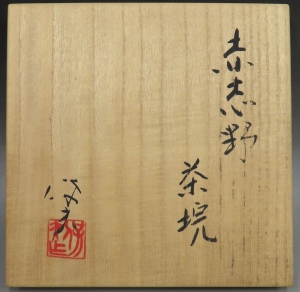 赤志野
茶埦